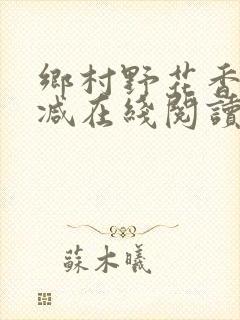 鄉村野花香
减在綫閱讀
蘇木曦